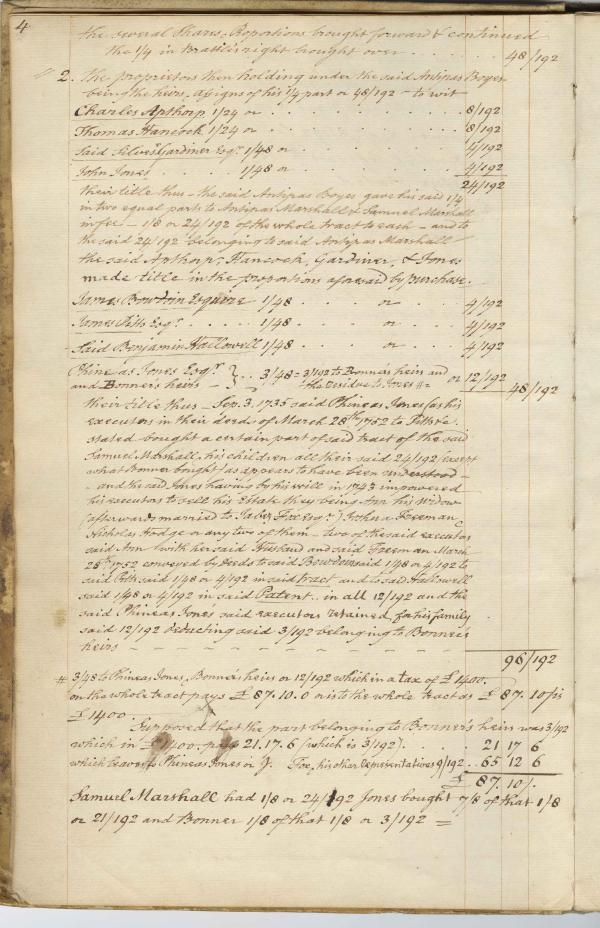 4
the several Shares, Proportions brought forward & continued
the 1/4 in Brattle's right brought over . . . . . . 48/192
2. the proprietors then holding under the said Antipas Boyes
being the heirs, assigns of his 1/4 part or 48/192 - to wit
Charles Apthorp 1/24 or . . . . . . . . 8/192
Thomas Hancock 1/24 or . . . . . . . . 8/192
Said Silvesr Gardiner Esqr. 1/48 or . . . . . . 4/192
John Jones . . . . . 1/48 or . . . . . . 4/192
24/192
their title thus - the said Antipas Boyes gave his said 1/4
in two equal parts to Antipas Marshall & Samuel Marshall
in fee - 1/8 or 24/192 of the whole tract to each - and to
the said 24/192 belonging to said Antipas Marshall
the said Apthorp, Hancock, Gardiner, & Jones
made title in the proportions aforesaid by purchase.
James Bowdoin Esquire 1/48 . . . . or . . 4/192
James Pitts Esqr. . . . . . 1/48 . . . . or . . 4/192
Said Benjamin Hallowell 1/48 . . . . or . . 4/192
Phineas Jones Esqr. } . . 3/48 = 3/192 to Bonner's heirs and
and Bonner's heirs - } the residue to Jones or 12/192 48/192
their title thus - Sep. 3. 1735 said Phineas Jones (as his
executors in their deed of March 28th 1752 to Pitts
stated bought a certain part of said tract of the said
Samuel Marshall, his children all their said 24/192 except
what Bonner bought (as appears to have been understood -
- and the said Jones having by his will in 1743 impowered
his executors to sell his Estate they being Ann his widow
(afterwards married to Jabez Fox Esqr.) Joshua Freeman
Nicholas Hodge or any two of them - two of the said executors
said Ann with her said Husband and said Freeman March
28th 1752 conveyed by deeds to said Bowdoin said 1/48 or 4/192 to
said Pitts said 1/48 or 4/192 in said tract and to said Hallowell
said 1/48 or 4/192 in said Patent . in all 12/192 and the
said Phineas Jones said executors retained, for his family
said 12/192 deducting said 3/192 belonging to Bonner's
heirs - - - - - - - - - -
96/192
# 3/48 to Phineas Jones, Bonner's heirs or 12/192 which in a tax of £ 1400.
on the whole tract pays £ 87.10.0 or is to the whole tract as £ 87. 10/ is
£ 1400.
Supposed that the part belonging to Bonner's heirs was 3/192
which in £ 1400. pays 21.17.6 (which is 3/192) . . . . 21 17 6
which leaves Phineas Jones or J. Fox, his other representatives 9/192 . . 65 12 6
£ 87. 10/.
Samuel Marshall had 1/8 or 24/192 Jones bought 7/8 of that 1/8
or 21/192 and Bonner 1/8 of that 1/8 or 3/192 =